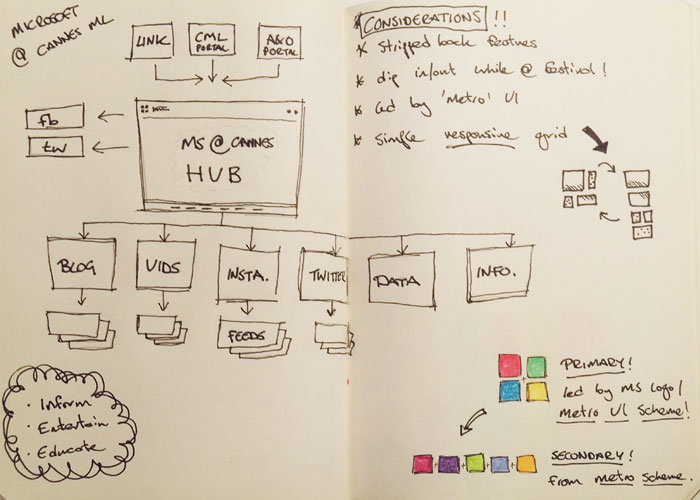 MICROSOFT
@ CANNES ML
LINK
CML
PORTAL
A&O
PORTAL
fb
tw
MS @ CANNES
HUB
BLOG
VIDS
INSTA.
TWITTER
DATA
INFO.
FEEDS
· Inform
· Entertain
· Educate
CONSIDERATIONS !!
* Stripped back features
* dip in/out while @ festival!
* Led by 'Metro' UI
* Simple responsive grid
PRIMARY!
led by MS logo/
Metro UI Scheme!
SECONDARY!
from Metro Scheme.